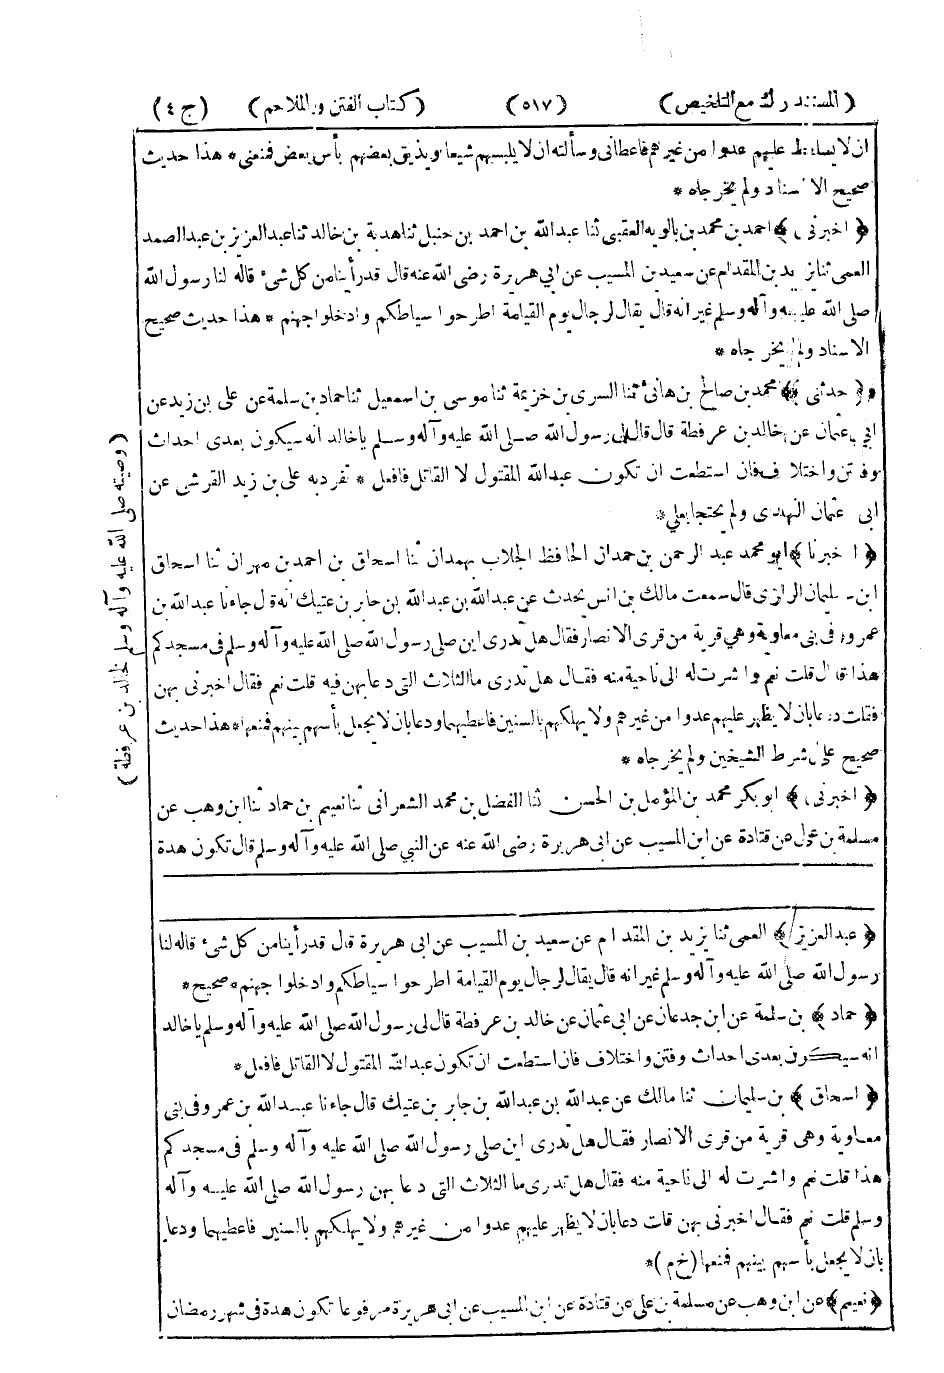 (المستدرك مع التلخيص) (٥١٧) (كتاب الفتن والملاحم) (ج ٤)
ان لا يسلط عليهم عدوا من غيرهم فاعطانى وسألته ان لا يلبسهم شيعا ويذيق بعضهم بأس بعض فمنعنى * هذا حديث
صحيح الاسناد ولم يخرجاه *
﴿ اخبرنى ﴾ احمد بن محمد بن بالويه العقبى ثنا عبدالله بن احمد بن حنبل ثنا هدبة بن خالد ثنا عبد العزيز بن عبدالصمد
العمى ثنا يزيد بن المقدام عن سعيد بن المسيب عن ابى هريرة رضى الله عنه قال قد رأينا من كل شىٔ قاله لنا رسول الله
صلى الله عليه وآله وسلم غير انه قال يقال لرجال يوم القيامة اطرحوا سياطكم وادخلوا جهنم * هذا حديث صحيح
الاسناد ولم يخرجاه *
﴿ حدثنى ﴾ محمد بن صالح بن هانى ثنا السرى بن خزيمة ثنا موسى بن اسمعيل ثنا حماد بن سلمة عن على بن زيد عن
ابى عثمان عن خالد بن عرفطة قال قال لى رسول الله صلى الله عليه وآله وسلم ياخالد انه سيكون بعدى احداث
وفتن واختلاف فان استطعت ان تكون عبدالله المقتول لا القاتل فافعل * تفرد به على بن زيد القرشى عن
ابى عثمان النهدى ولم يحتجا بعلي *
﴿ اخبرنا ﴾ ابو محمد عبد الرحمن بن حمدان الحافظ الجلاب بهمدان ثنا اسحاق بن احمد بن مهران ثنا اسحاق
ابن سليمان الرازى قال سمعت مالك بن انس يحدث عن عبدالله بن عبدالله بن جابر بن عتيك انه قال جاءنا عبدالله بن
عمرو فى بنى معاوية وهي قرية من قرى الانصار فقال هل تدرى اين صلى رسول الله صلى الله عليه وآله وسلم فى مسجدكم
هذا قال قلت نعم واشرت له الى ناحية منه فقال هل تدرى ما الثلاث التى دعا بهن فيه قلت نعم فقال اخبرنى بهن
فقلت دعا بان لا يظهر عليهم عدوا من غيرهم ولا يهلكهم بالسنين فاعطيهما ودعا بان لا يجعل بأسهم بينهم فمنعها * هذا حديث
صحيح على شرط الشيخين ولم يخرجاه *
﴿ اخبرنى ﴾ ابو بكر محمد بن المؤمل بن الحسن ثنا الفضل بن محمد الشعرانى ثنا نعيم بن حماد ثنا ابن وهب عن
مسلمة بن على عن قتادة عن ابن المسيب عن ابى هريرة رضى الله عنه عن النبي صلى الله عليه وآله وسلم قال تكون هدة
(وصيته صلى الله عليه وآله وسلم لخالد بن عرفطة)
﴿ عبدالعزيز ﴾ العمى ثنا يزيد بن المقدام عن سعيد بن المسيب عن ابى هريرة قال قد رأينا من كل شىٔ قاله لنا
رسول الله صلى الله عليه وآله وسلم غير انه قال يقال لرجال يوم القيامة اطرحوا سياطكم وادخلوا جهنم * صحيح *
﴿ حماد ﴾ بن سلمة عن ابن جدعان عن ابى عثمان عن خالد بن عرفطة قال لى رسول الله صلى الله عليه وآله وسلم ياخالد
انه سيكون بعدى احداث وفتن واختلاف فان استطعت ان تكون عبدالله المقتول لا القاتل فافعل *
﴿ اسحاق ﴾ بن سليمان ثنا مالك عن عبدالله بن عبدالله بن جابر بن عتيك قال جاءنا عبدالله بن عمرو فى بنى
معاوية وهى قرية من قرى الانصار فقال هل تدرى اين صلى رسول الله صلى الله عليه وآله وسلم فى مسجدكم
هذا قلت نعم واشرت له الى ناحية منه فقال هل تدرى ما الثلاث التى دعا بهن رسول الله صلى الله عليه وآله
وسلم قلت نعم فقال اخبرنى بهن قلت دعا بان لا يظهر عليهم عدوا من غيرهم ولا يهلكهم بالسنين فاعطيهما ودعا
بان لا يجعل بأسهم بينهم فمنعها (خ م) *
﴿ نعيم ﴾ عن ابن وهب عن مسلمة بن على عن قتادة عن ابن المسيب عن ابى هريرة مرفوعا تكون هدة فى شهر رمضان